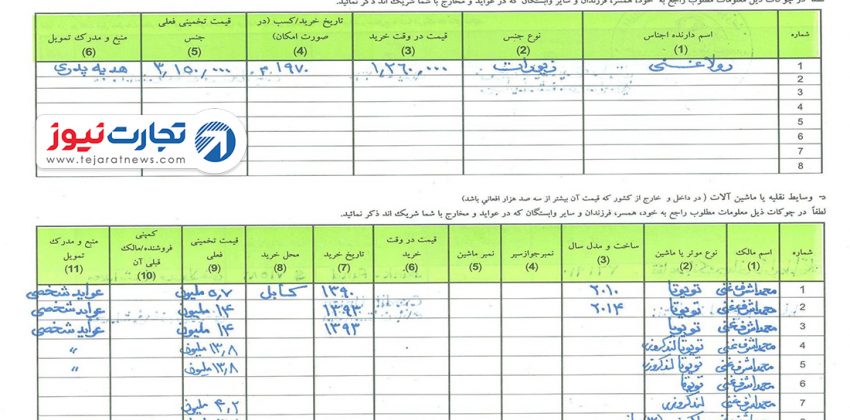 لطفاً در چوکات ذیل معلومات مطلوب راجع به خود، همسر، فرزندان و سایر وابستگان که در عواید و مخارج با شما شریک اند ذکر نمائید.
شماره اسم دارنده اجناس (1) نوع جنس (2) قیمت در وقت خرید (3) تاریخ خرید/کسب (در صورت امکان) (4) قیمت تخمینی فعلی جنس (5) منبع و مدرک تمویل (6)
1 رولا غنی زیورات ۱٫۲۶۰٫۰۰۰ ۱۹۷۰م ۳٫۱۵۰٫۰۰۰ هدیه پدری
2
3
4
5
6
7
8
تجارت نیوز
www.tejaratnews.com
د- وسایط نقلیه یا ماشین آلات ( در داخل و خارج از کشور که قیمت آن بیشتر از سه صد هزار افغانی باشد)
لطفاً در چوکات ذیل معلومات مطلوب راجع به خود، همسر، فرزندان و سایر وابستگان که در عواید و مخارج با شما شریک اند ذکر نمائید.
شماره اسم مالک (1) نوع موتر یا ماشین (2) ساخت و مدل سال (3) نمبرجوازسیر (4) نمبر ماشین (5) قیمت در وقت خرید (6) تاریخ خرید (7) محل خرید (8) قیمت تخمینی فعلی (9) کمپنی فروشنده/مالک قبلی آن (10) منبع و مدرک تمویل (11)
1 محمداشرف غنی تویوتا ۲۰۱۰ ۱۳۹۰ کابل ۵٫۷ ملیون عواید شخصی
2 محمداشرف غنی تویوتا ۲۰۱۴ ۱۳۹۳ ۱۴ ملیون عواید شخصی
3 محمداشرف غنی تویوتا ۱۳۹۳ ۱۴ ملیون عواید شخصی
4 محمداشرف غنی تویوتا لندکروزر ۱۳٫۸ ملیون "
5 محمداشرف غنی تویوتا لندکروزر ۱۳٫۸ ملیون "
6 محمداشرف غنی تویوتا
7 محمداشرف غنی لندکروزر ۴٫۲ ملیون